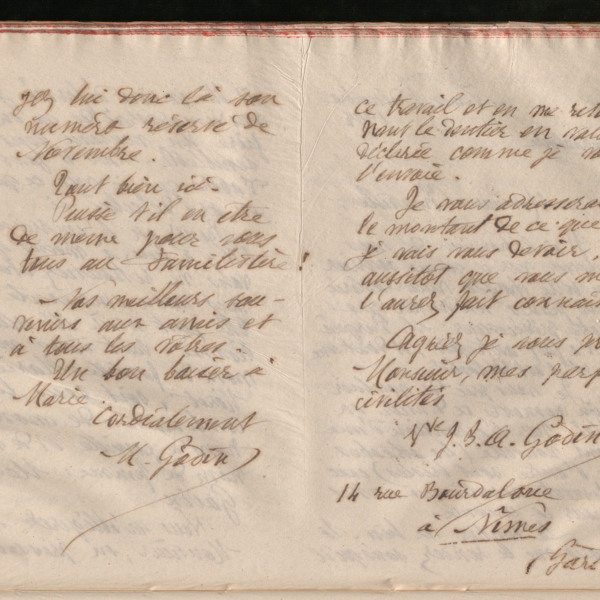 yez lui donc là son
numéro réservé de
Novembre.
Tout bien ici.
Puisse t'il en être
de même pour vous
tous au Familistère !
— Nos meilleurs sou-
venirs aux amis et
à tous les vôtres.
Un bon baiser à
Marie.
Cordialement
M. Godin
ce travail et en me reto
nant le dentier en
déclarée comme je
l'envoie.
Je vous adresserai
le montant de ce que
je vais vous devoir,
aussitôt que vous m
l'aurez fait connaît
Agréez je vous pr
Monsieur, mes parf
civilités
Vve J. B. A. Godin
14 rue Bourdaloue
à Nîmes
Gard